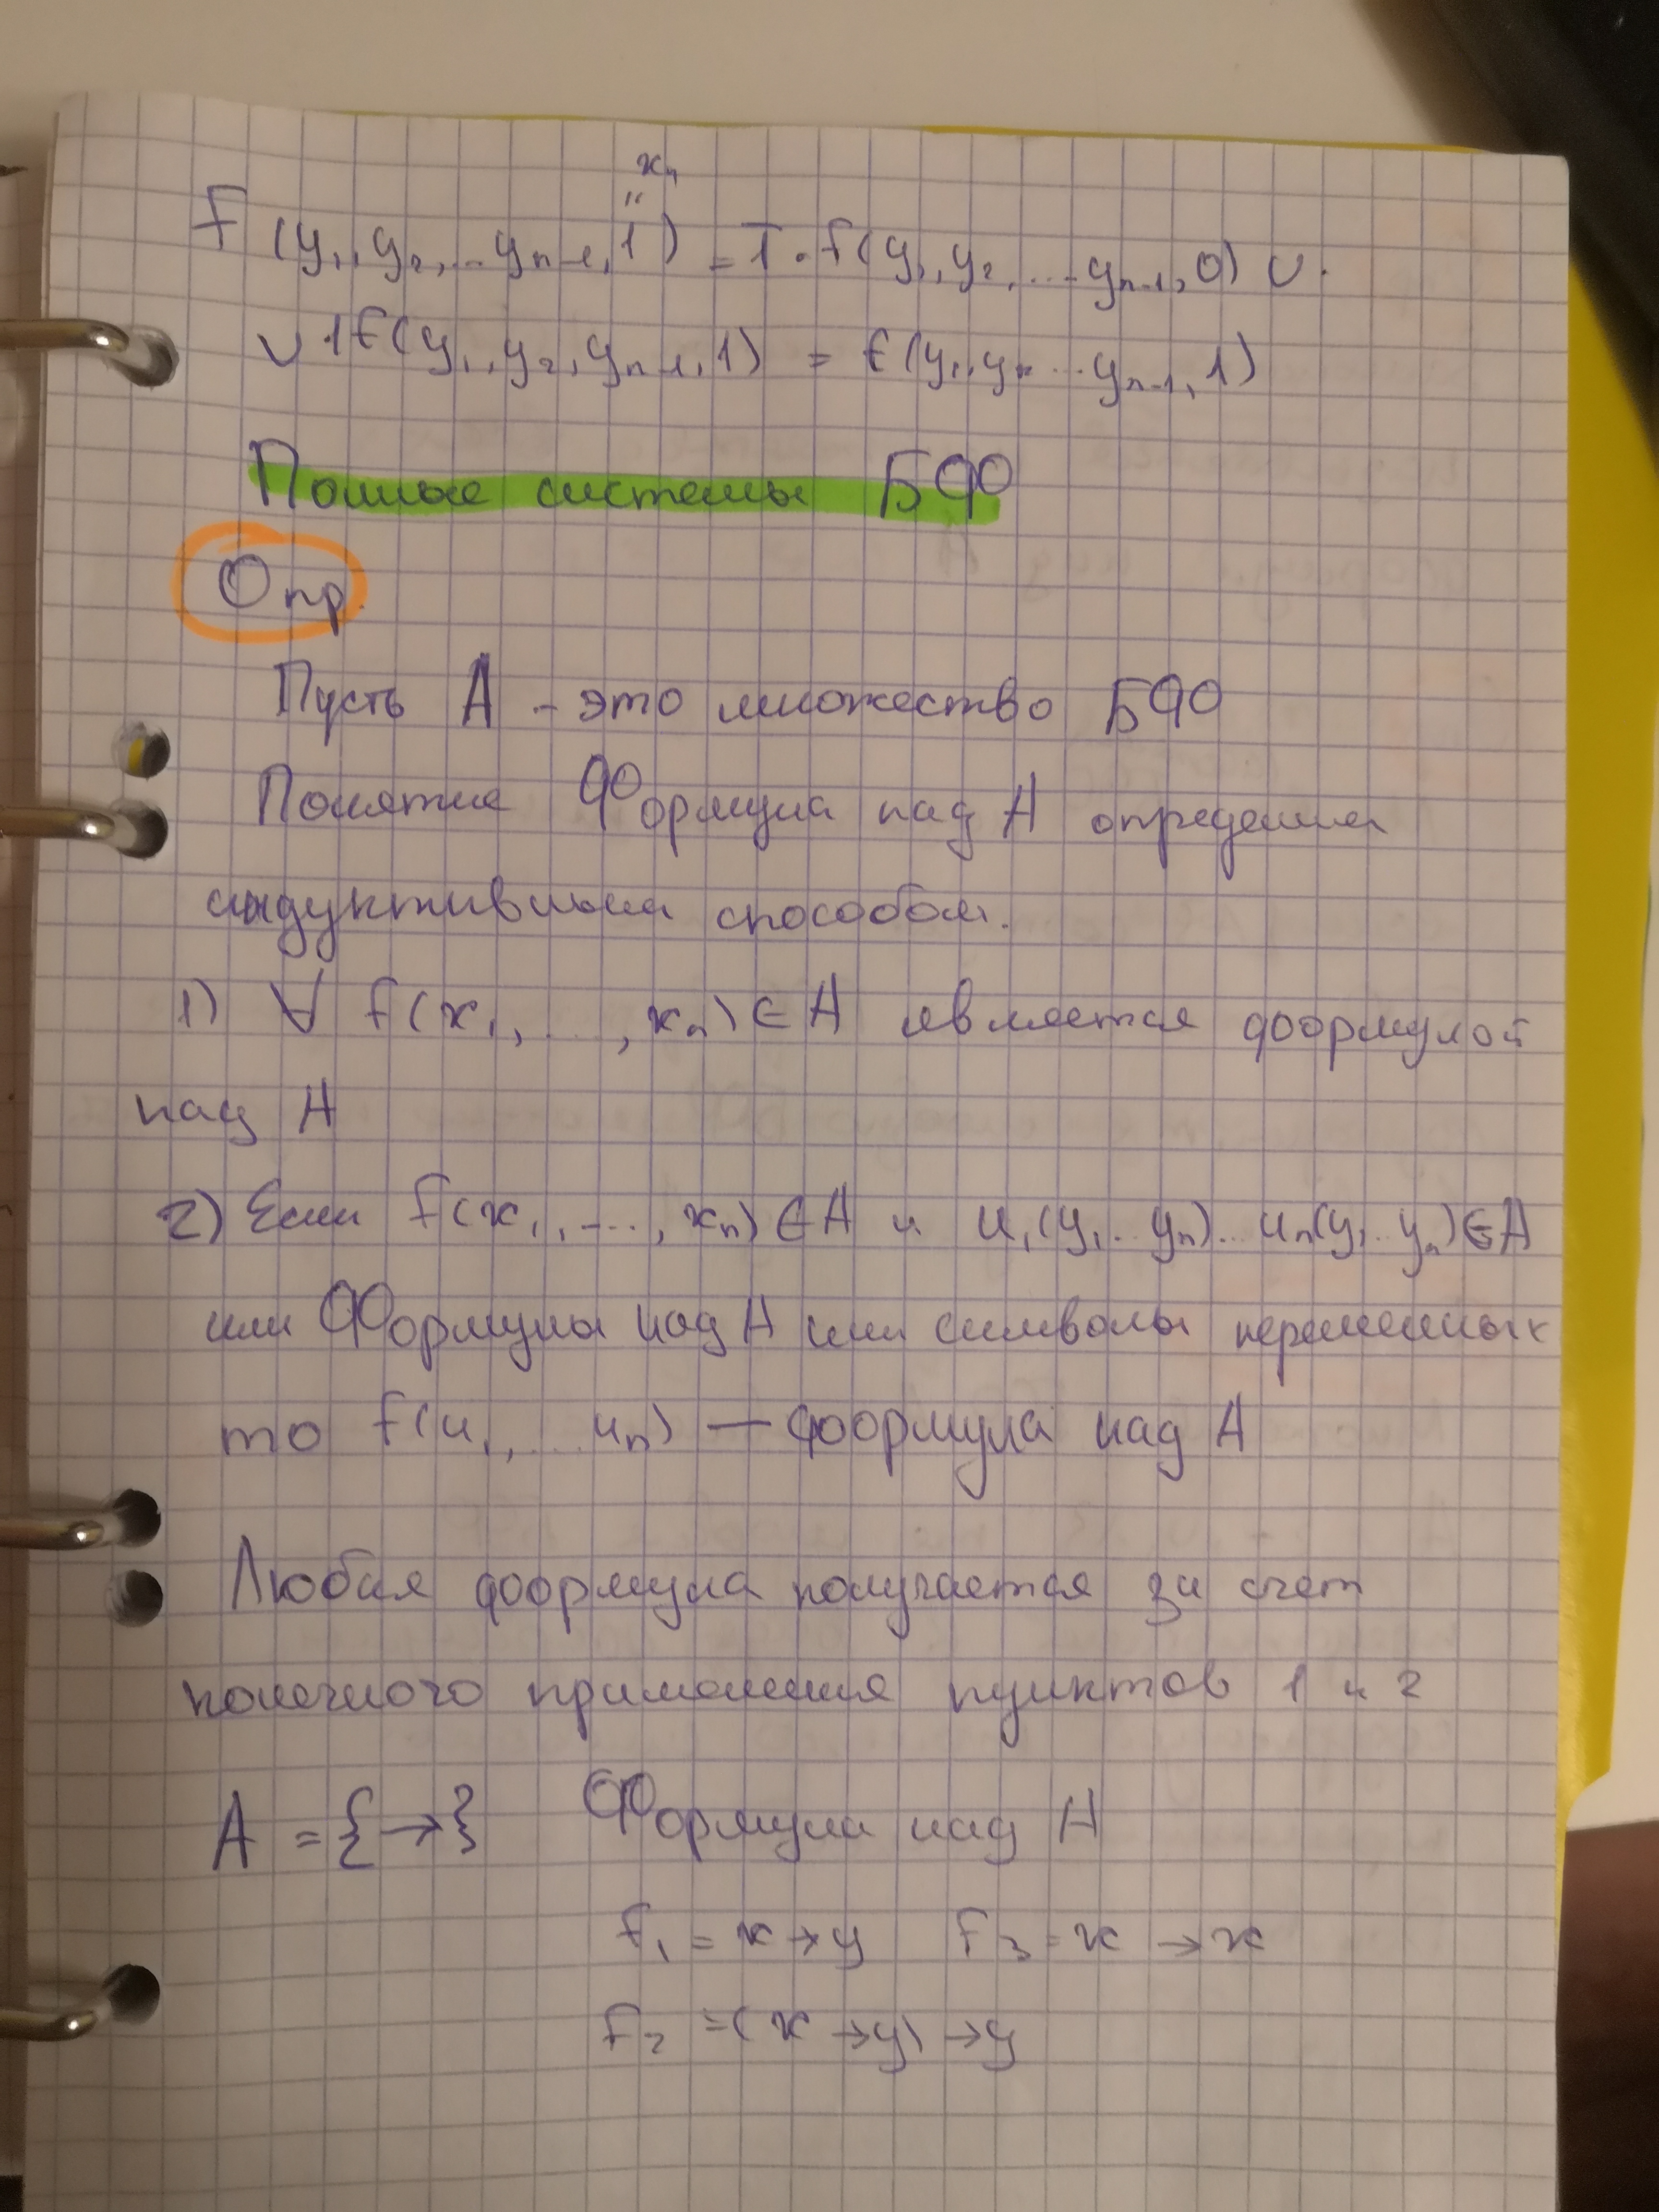 xₙ
"
f (y₁, y₂, ... yₙ₋₁, 1) = 1̅ · f(y₁, y₂, ... yₙ₋₁, 0) ∨
∨ 1 f(y₁, y₂, yₙ₋₁, 1) = f(y₁, yₙ ... yₙ₋₁, 1)
Полные системы БФ
Опр.
Пусть A - это множество БФ
Понятие Формула над A определим
индуктивным способом.
1) ∀ f(x₁, ..., xₙ) ∈ A является формулой
над A
2) Если f(x₁, ..., xₙ) ∈ A и u₁(y₁ .. yₙ) ... uₙ(y₁ .. yₙ) ∈ A
или Формулы над A или символы переменных
то f(u₁, ... uₙ) — формула над A
Любая формула получается за счет
конечного применения пунктов 1 и 2
A = {→} Формула над A
f₁ = x → y f₃ = x → x
f₂ = (x → y) → y